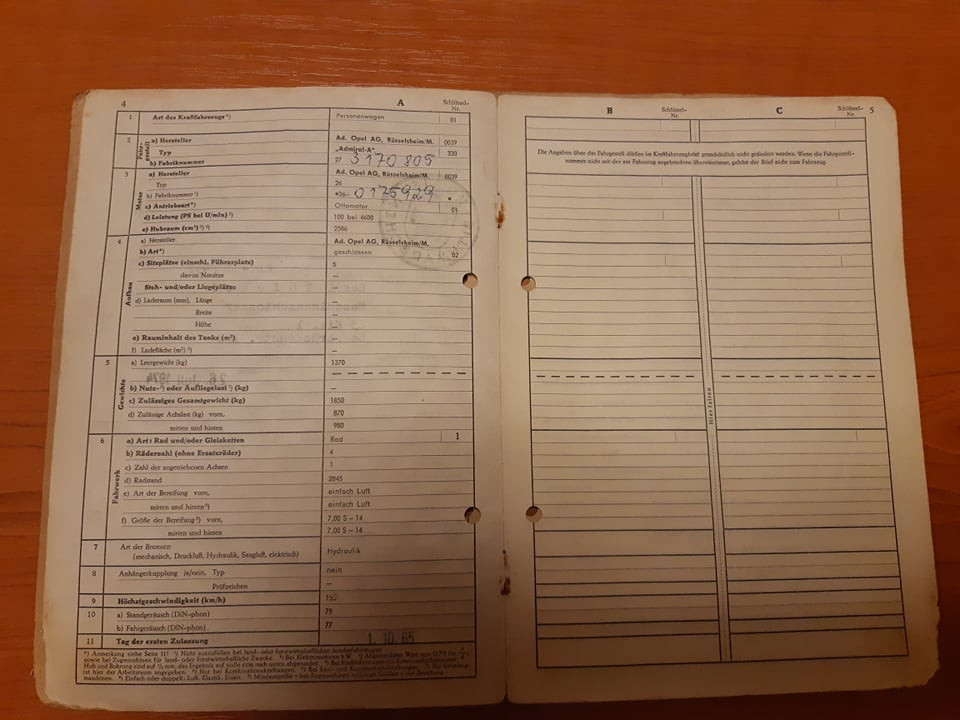 4 A Schlüssel-Nr.
1 Art des Kraftfahrzeugs*) Personenwagen 01
2 Fahrgestell a) Hersteller Ad. Opel AG, Rüsselsheim/M. 0039
Typ „Admiral-A" 330
b) Fabriknummer 27 3170 805
3 Motor a) Hersteller Ad. Opel AG, Rüsselsheim/M. 0039
Typ 26
b) Fabriknummer¹) *26- 0175929 *
c) Antriebsart*) Ottomotor 01
d) Leistung (PS bei U/min) ²) 100 bei 4600
e) Hubraum (cm³) ³) ⁴) 2586
4 Aufbau a) Hersteller Ad. Opel AG, Rüsselsheim/M.
b) Art*) geschlossen 02
c) Sitzplätze (einschl. Führerplatz) 5
davon Notsitze —
Steh- und/oder Liegeplätze —
d) Laderaum (mm), Länge —
Breite —
Höhe —
e) Rauminhalt des Tanks (m³) —
f) Ladefläche (m²) —
5 Gewichte a) Leergewicht (kg) 1370
b) Nutz- oder Aufliegelast (kg) —
c) Zulässiges Gesamtgewicht (kg) 1850
d) Zulässige Achslast (kg) vorn, 870
mitten und hinten 980
6 Fahrwerk a) Art: Rad und/oder Gleisketten Rad 1
b) Räderzahl (ohne Ersatzräder) 4
c) Zahl der angetriebenen Achsen 1
d) Radstand 2845
e) Art der Bereifung vorn, einfach Luft
mitten und hinten einfach Luft
f) Größe der Bereifung vorn, 7,00 S – 14
mitten und hinten 7,00 S – 14
7 Art der Bremsen
(mechanisch, Druckluft, Hydraulik, Saugluft, elektrisch) Hydraulik
8 Anhängerkupplung ja/nein, Typ nein
Prüfzeichen —
9 Höchstgeschwindigkeit (km/h)
10 a) Standgeräusch (DIN-phon) 79
b) Fahrgeräusch (DIN-phon) 77
11 Tag der ersten Zulassung 1. 10. 65
*) Anmerkung siehe Seite 11! ¹) Nicht auszufüllen bei land- oder forstwirtschaftlichen Sonderfahrzeugen
sowie bei Zugmaschinen für land- oder forstwirtschaftliche Zwecke. ²) Bei Elektromotoren kW.
B Schlüssel-Nr. C Schlüssel-Nr. 5
Die Angaben über das Fahrgestell dürfen im Kraftfahrzeugbrief grundsätzlich nicht geändert werden. Wenn die Fahrgestell-
nummer nicht mit der am Fahrzeug angegebenen übereinstimmt, gehört der Brief nicht zum Fahrzeug.
Hier falten